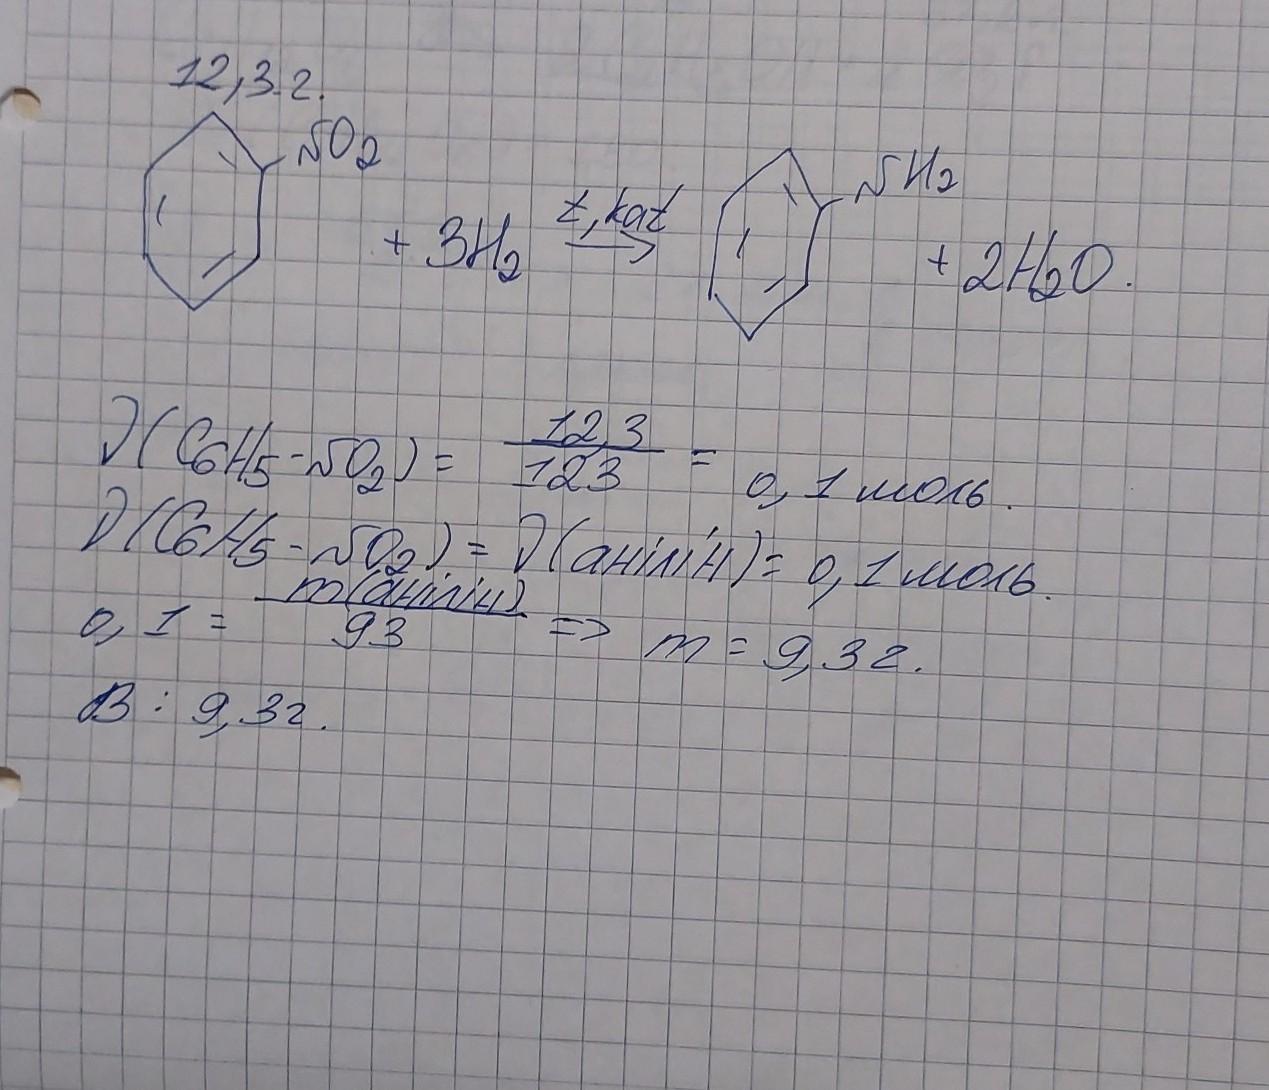 12,3 г.
NO2 + 3H2 t, kat → NH2 + 2H2O.
ν(C6H5-NO2) = 12,3/123 = 0,1 моль.
ν(C6H5-NO2) = ν(анілін) = 0,1 моль.
0,1 = m(анілін)/93 => m = 9,3 г.
В: 9,3 г.